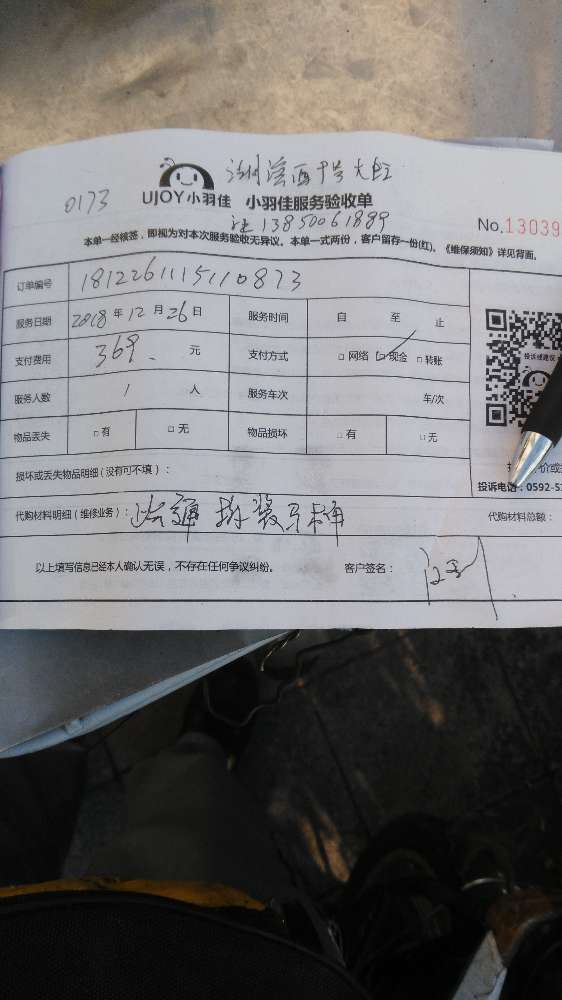 0173
UJOY小羽佳 小羽佳服务验收单
13850061889
No.13039
本单一经核签，即视为对本次服务验收无异议。本单一式两份，客户留存一份(红)。《维保须知》详见背面。
订单编号 1812261115110873
服务日期 2018年12月26日 服务时间 自 至 止
支付费用 369. 元 支付方式 □网络 ☑现金 □转账
服务人数 1 人 服务车次 车/次
物品丢失 □有 □无 物品损坏 □有 □无
投诉或建议
损坏或丢失物品明细（没有可不填）：
投诉电话：0592-5
代购材料明细（维修业务）： 疏通 拆装马桶 代购材料总额：
以上填写信息已经本人确认无误，不存在任何争议纠纷。 客户签名：